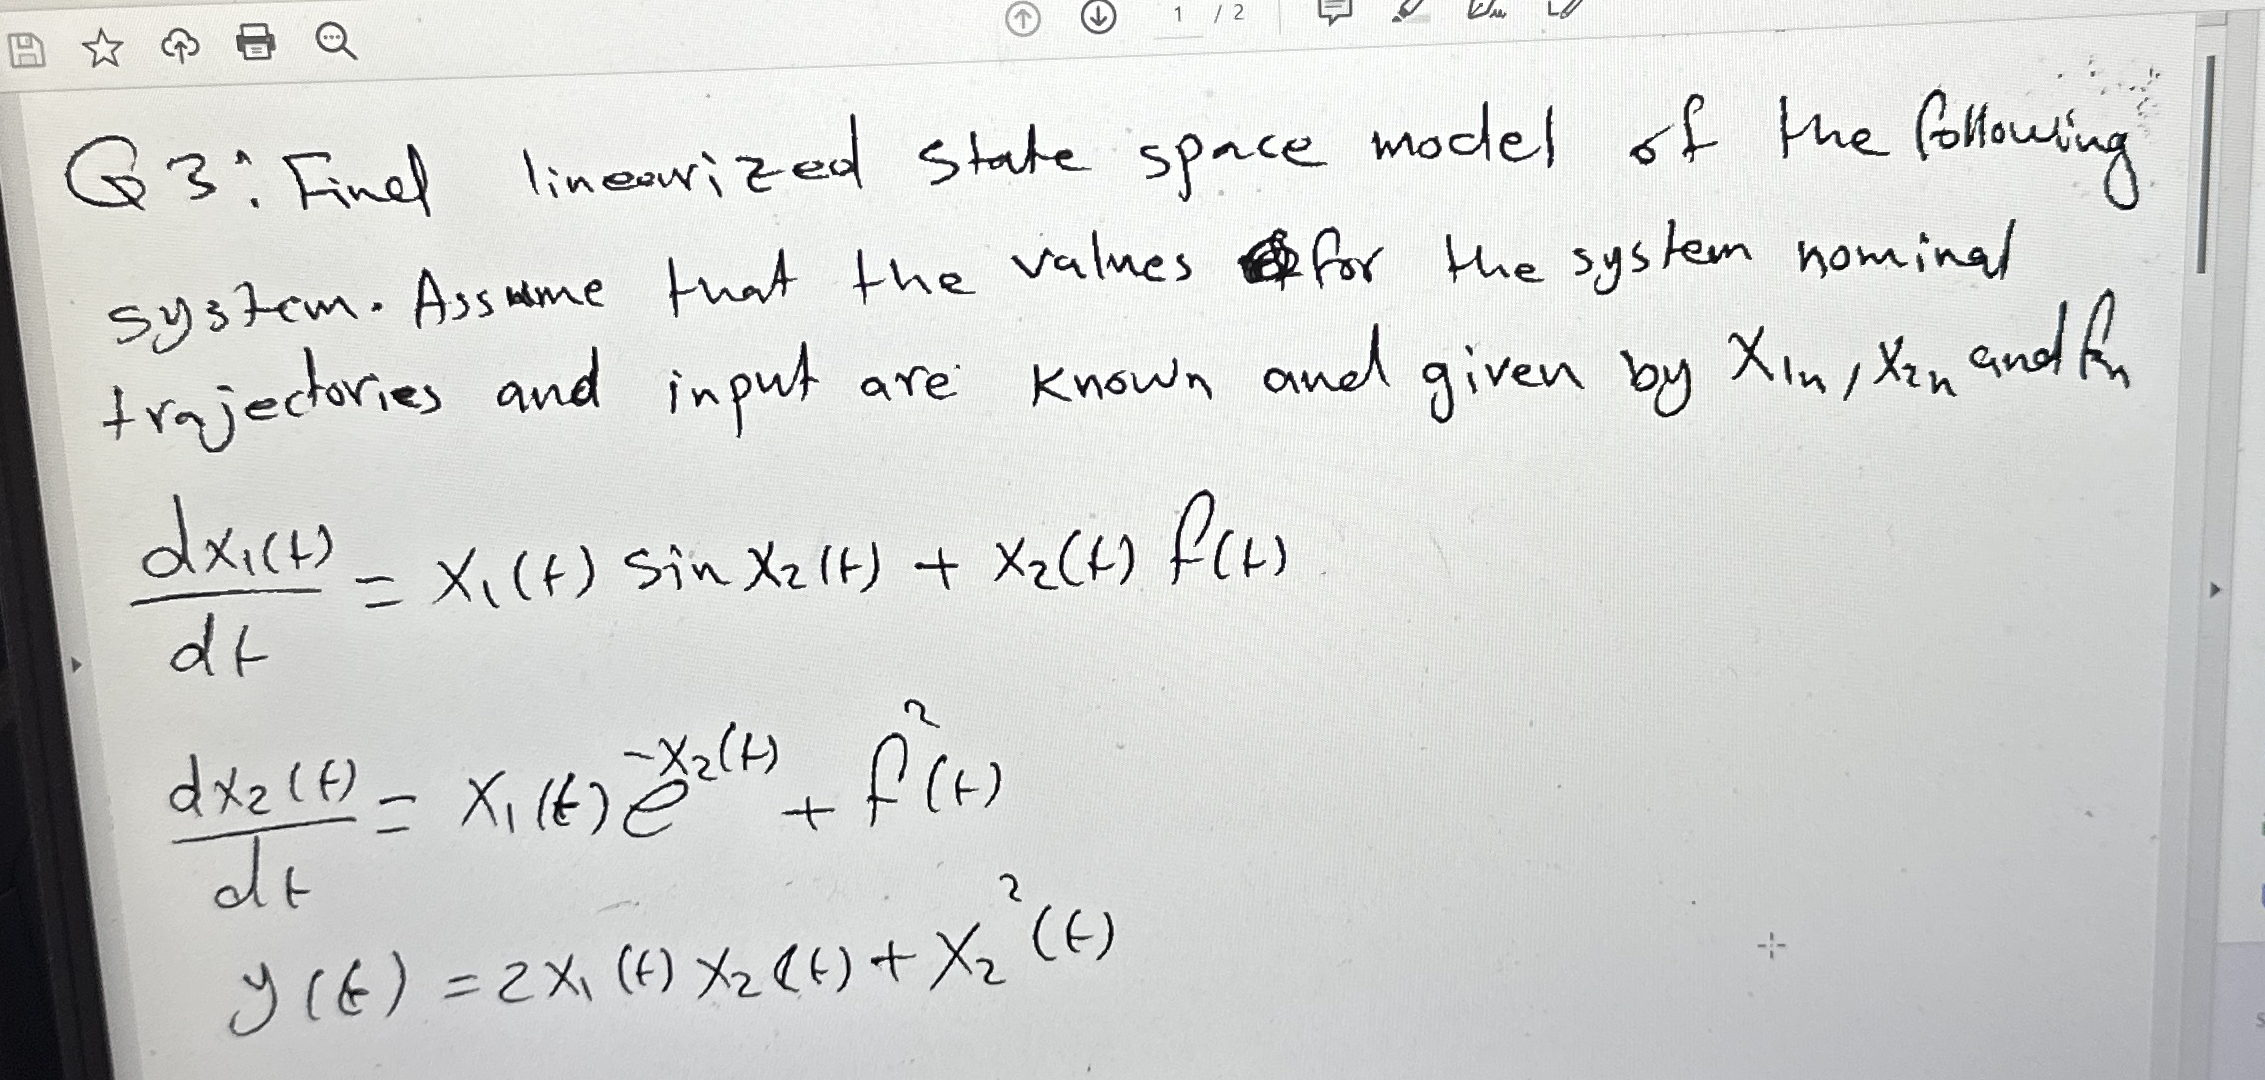 1 / 2
Q3: Find linearized state space model of the following
system. Assume that the values for the system nominal
trajectories and input are known and given by X1n, X2n and fn
dx1(t)/dt = X1(t) sin X2(t) + X2(t) f(t)
dx2(t)/dt = X1(t) e^-X2(t) + f^2(t)
y(t) = 2X1(t) X2(t) + X2^2(t)